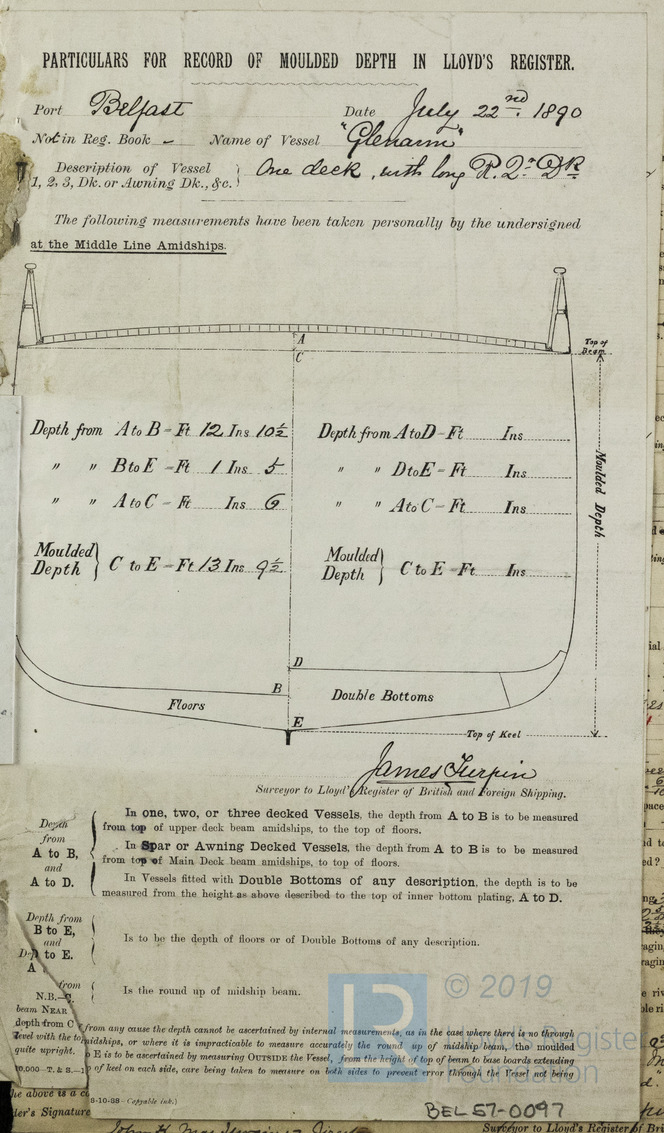 PARTICULARS FOR RECORD OF MOULDED DEPTH IN LLOYD'S REGISTER.
Port Belfast Date July 22nd. 1890
Not in Reg. Book – Name of Vessel "Glenarm"
Description of Vessel
1, 2, 3, Dk. or Awning Dk., &c. } One deck, with long R. Qr Dk
The following measurements have been taken personally by the undersigned
at the Middle Line Amidships.
Top of
Beam
A
C
Depth from A to B = Ft 12 Ins 10½ Depth from A to D = Ft Ins
" " B to E = Ft 1 Ins 5 " " D to E = Ft Ins
" " A to C = Ft Ins 6 " " A to C = Ft Ins
Moulded
Depth } C to E = Ft 13 Ins 9½ Moulded
Depth } C to E = Ft Ins
Moulded Depth
D
B
Floors Double Bottoms
E
Top of Keel
James Turpin
Surveyor to Lloyd's Register of British and Foreign Shipping.
Depth
from
A to B,
and
A to D.
In one, two, or three decked Vessels, the depth from A to B is to be measured
from top of upper deck beam amidships, to the top of floors.
In Spar or Awning Decked Vessels, the depth from A to B is to be measured
from top of Main Deck beam amidships, to top of floors.
In Vessels fitted with Double Bottoms of any description, the depth is to be
measured from the height as above described to the top of inner bottom plating, A to D.
Depth from
B to E,
and
D to E.
Is to be the depth of floors or of Double Bottoms of any description.
A
from
Is the round up of midship beam.
N.B.—
beam NEAR
depth from C from any cause the depth cannot be ascertained by internal measurements, as in the case where there is no through
level with the top midships, or where it is impracticable to measure accurately the round up of midship beam, the moulded
quite upright. E is to be ascertained by measuring OUTSIDE the Vessel, from the height of top of beam to base boards extending
10,000—T. & S.—1 of keel on each side, care being taken to measure on both sides to prevent error through the Vessel not being
8-10-88—Copyable ink.)
he above is a
der's Signature
Surveyor to Lloyd's Register of Bri
© 2019
Register
Foundation
BEL57-0097